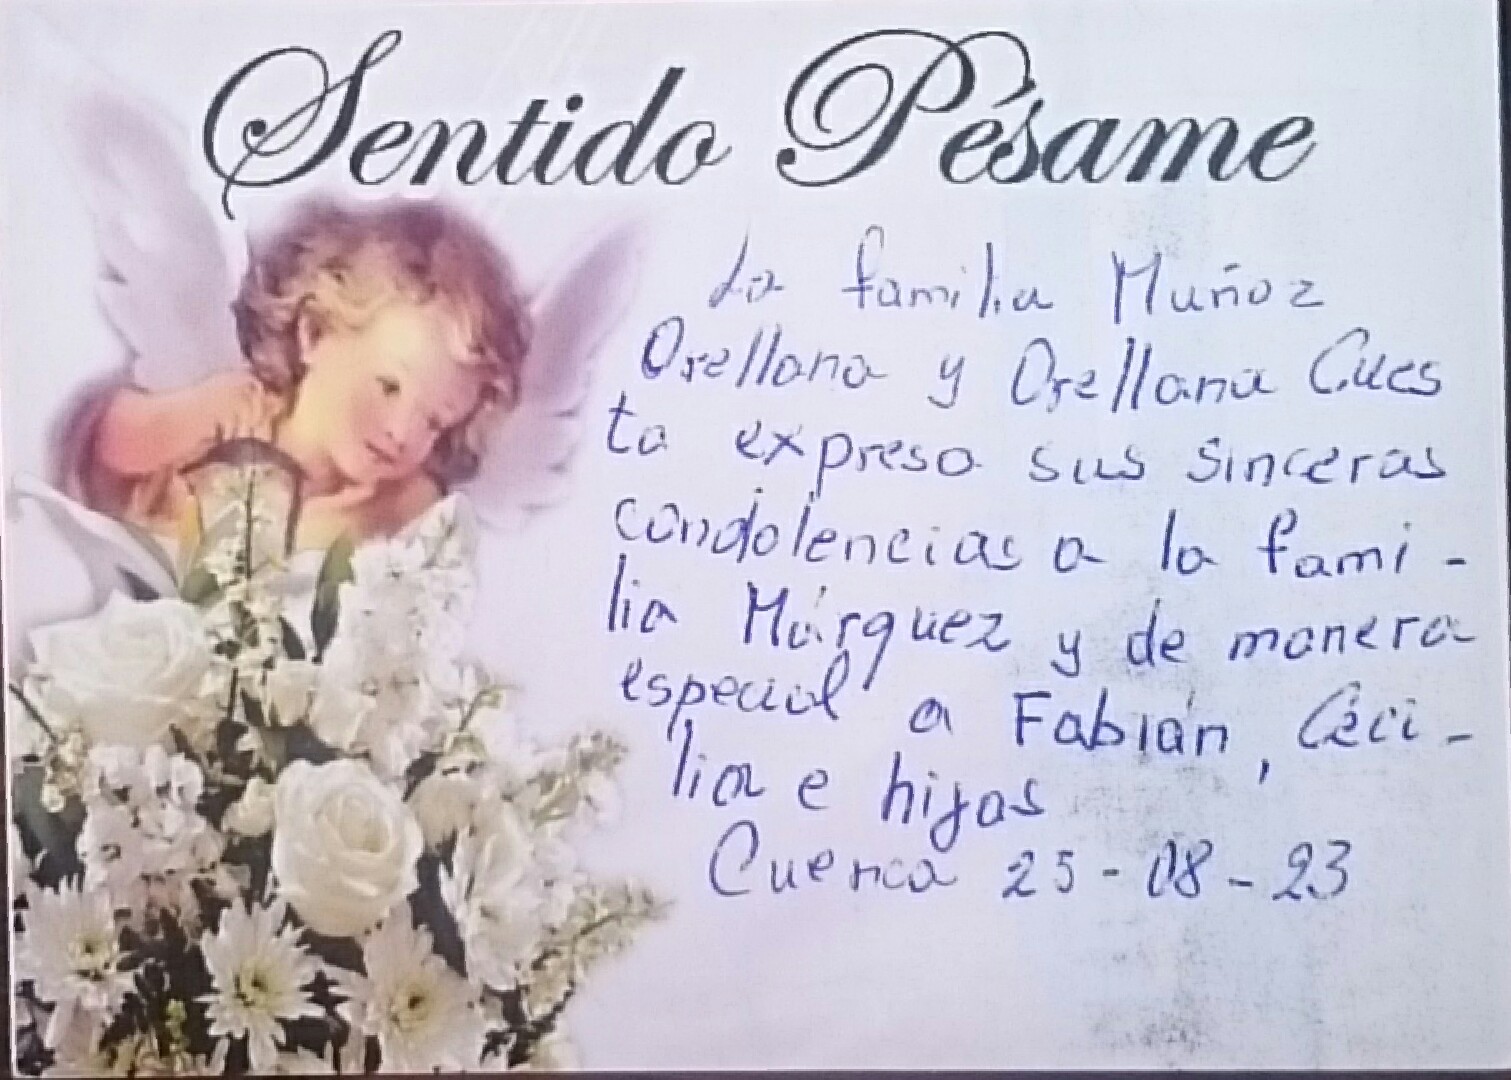 Sentido Pésame
La familia Muñoz
Orellana y Orellana Cues
ta expresa sus sinceras
condolencias a la fami -
lia Márquez y de manera
especial a Fabián, Ceci -
lia e hijas
Cuenca 25 - 08 - 23